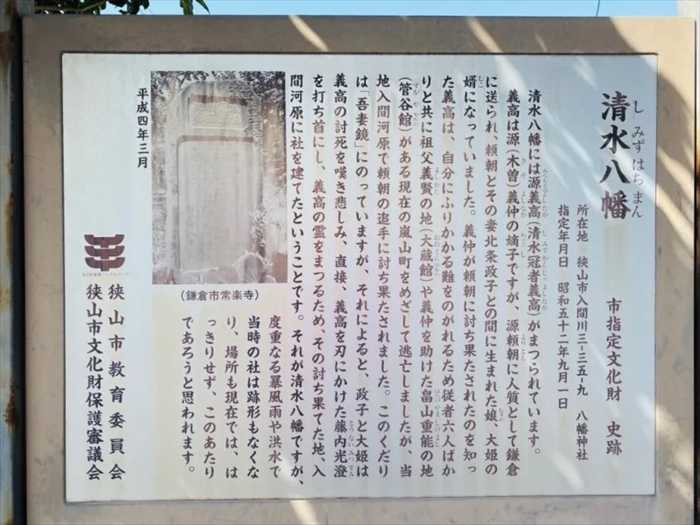 清水八幡
しみずはちまん
市指定文化財　史跡
所在地　狭山市入間川三-三五-九　八幡神社
指定年月日　昭和五十二年九月一日
清水八幡には源義高(清水冠者義高)がまつられています。
義高は源(木曽)義仲の嫡子ですが、源頼朝に人質として鎌倉
に送られ、頼朝とその妻北条政子との間に生まれた娘、大姫の
婿になっていました。義仲が頼朝に討ち果たされたのを知っ
た義高は、自分にふりかかる難をのがれるため従者六人ばか
りと共に祖父義賢の地(大蔵館)や義仲を助けた畠山重能の地
(菅谷館)がある現在の嵐山町をめざして逃亡しましたが、当
地入間河原で頼朝の追手に討ち果たされました。このくだり
は「吾妻鏡」にのっていますが、それによると、政子と大姫は
義高の討死を嘆き悲しみ、直接、義高を刃にかけた藤内光澄
を打ち首にし、義高の霊をまつるため、その討ち果てた地、入
間河原に社を建てたということです。それが清水八幡ですが、
度重なる暴風雨や洪水で
当時の社は跡形もなくな
り、場所も現在では、は
っきりせず、このあたり
であろうと思われます。
(鎌倉市常楽寺)
平成四年三月
狭山市教育委員会
狭山市文化財保護審議会